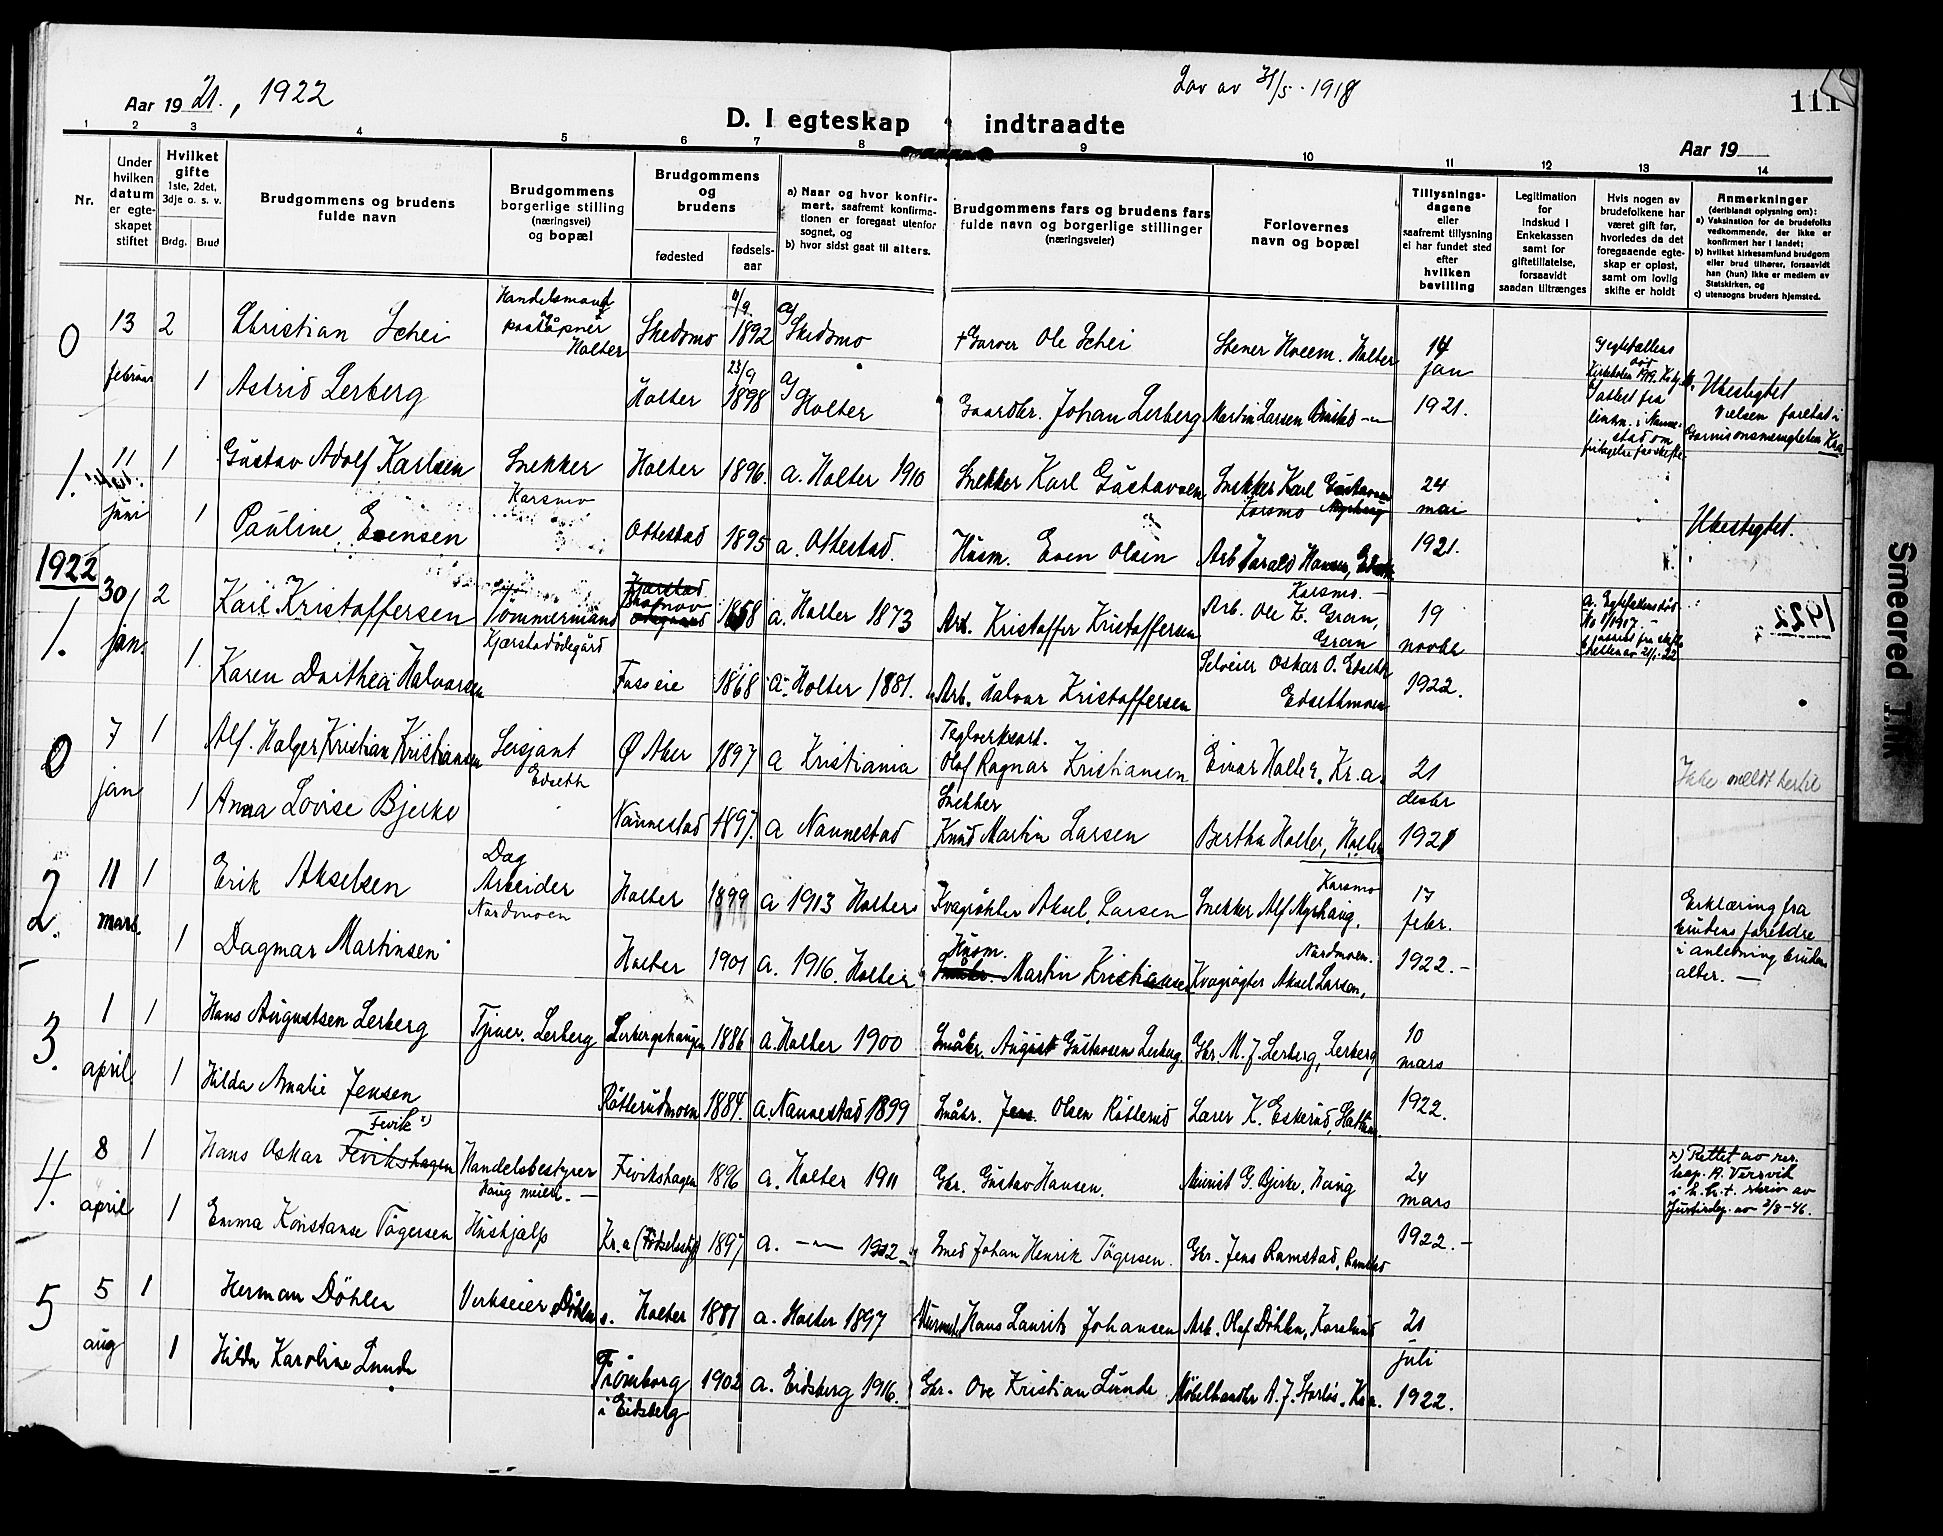 Aar 19 21., 1922
Lov av 31/5 - 1918
111
D. I egteskap indtraadte
Aar 19
1 2 3 4 5 6 7 8 9 10 11 12 13 14
Nr.
Under hvilken datum er egteskapet stiftet
Hvilket gifte 1ste, 2det, 3dje o. s. v.
Brdg. Brud
Brudgommens og brudens fulde navn
Brudgommens borgerlige stilling (næringsvei) og bopæl
Brudgommens og brudens
fødested
fødselsaar
a) Naar og hvor konfirmert, saafremt konfirmationen er foregaat utenfor sognet, og
b) hvor sidst gaat til alters.
Brudgommens fars og brudens fars fulde navn og borgerlige stillinger (næringsveier)
Forlovernes navn og bopæl
Tillysningsdagene eller saafremt tillysning ei har fundet sted efter hvilken bevilling
Legitimation for Indskud i Enkekassen samt for giftetillatelse, forsaavidt saadan tiltrænges
Hvis nogen av brudefolkene har været gift før, hvorledes da det foregaaende egteskap er opløst, samt om lovlig skifte er holdt
Anmerkninger (deriblandt oplysning om):
a) Vaksination for de brudefolks vedkommende, der ikke er konfirmert her i landet;
b) hvilket kirkesamfund brudgom eller brud tilhører, forsaavidt han (hun) ikke er medlem av Statskirken, og
c) utensogns bruders hjemsted.
0 13 2 Christian Schei Handelsmand og postaapner Holter Skedsmo 11/9 1892 a) Skedsmo + Garver Ole Schei Stener Hveem. Holter 14 jan 1921.
februar 1 Astrid Lerberg Holter 23/9 1898 a) Holter Gaardbr. Johan Lerberg Martin Larsen
Egtefællens død
Attest fra
Ukestygtet
Vielsen foretat i Garnisonsmenigheten Kra
1. 11 juni 1 Gustav Adolf Karlsen Snekker Karsmo Holter 1896. a. Holter 1910 Snekker Karl Gustavsen Snekker Karl Gustavsen Karsmo 24 mai 1921.
1 Pauline Evensen Ottestad 1895 a. Ottestad. Husm. Even Olsen Arb Harald Hansen,
Ukestygtet.
1922
1. 30 jan. 2 Karl Kristoffersen Tömmermand Kjærstadödegård 1858 a. Holter 1873 Arb. Kristoffer Kristoffersen Arb. Ole K. Gran, Gran 19 novbr 1922.
1. Karen Dorthea Halvorsen 1868 a. Holter 1881. Arb. Halvor Kristoffersen Selveier Oskar O. Edseth Edsethmoen
a. Egtefellens død
1922
0 7 jan 1 Alf. Holger Kristian Kristiansen Sersjant Edseth Ø Aker 1897 a Kristiania Teglverksarb. Olaf Ragnar Kristiansen Einar Holler, Kr.a. 21 desbr 1921
1 Anna Lovise Bjerke Nannestad 1897. a Nannestad Snekker Knud Martin Larsen Bertha Holter, Holter
Ikke meldt hertil
2. 11 mars. 1 Erik Akselsen Dag Arbeider Nordmoen Holter 1899 a 1913 Holter Kvegrøkter Aksel Larsen Snekker Alf Myrhaug, Karsmo 17 febr. 1922.-
1 Dagmar Martinsen Holter 1901 a. 1916. Holter Husm. Martin Kristiansen Kvegrøgter Aksel Larsen, Nordmoen.
Erklæring fra brudens foreldre i anledning brudens alter. —
3. 1 april. 1 Hans Augustsen Lerberg Tjener. Lerberg Lerbergshaugen 1886 a. Holter 1900 Småbr. August Gustavsen Lerberg. Gbr. M. J. Lerberg, Lerberg, 10 mars 1922.
1 Hilda Amalie Jensen Rötterudmoen 1884. a. Nannestad 1899 Småbr. Jens Olsen Rötterud Lærer K. Eskerud,
4. 8 april 1 Hans Oskar Fevikshagen Fevik x) Handelsbestyrer Haug mølle. — Fevikshagen 1896 a. Holter 1911 Gbr. Gustav Hansen. G. Bjerke, Haug 24 mars 1922.-
1 Emma Konstanse Tögersen Hushjælp Kr.a (Fødselsstif) 1897 a. —"— 1912 Smed Johan Henrik Tögersen. Gbr. Jens Ramstad, Ramstad
x) Rettet av res. kap. A. Versvik i h. h. t. skriv av Justisdep. av 2/8-46.
5 5 aug 1 Herman Döhlen Verkseier Döhlen s. Holter 1881 a. Holter 1897 Murmst. Hans Laurits Johansen Arb. Olaf Döhlen, Karslund 21 juli 1922.
1 Hilda Karoline Lunde Trömborg i Eidsberg 1902 a. Eidsberg 1916. Gbr. Ove Kristian Lunde Møbelhandler A. J. Kr.a.
Smeared Ink